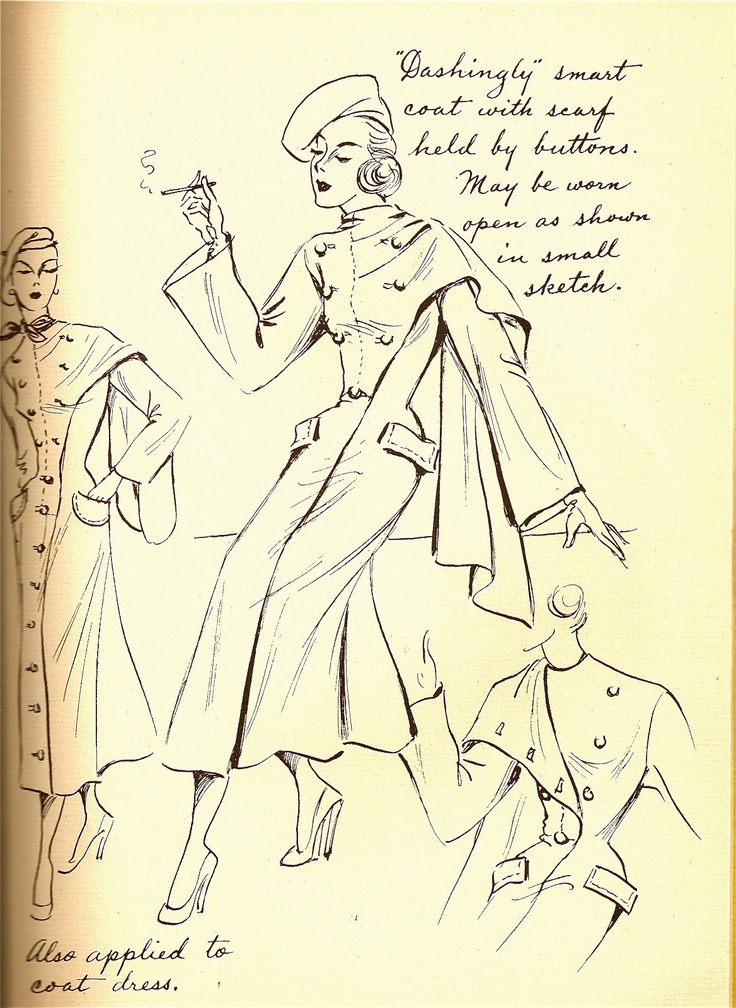 "Dashingly" smart
coat with scarf
held by buttons.
May be worn
open as shown
in small
sketch.
Also applied to
coat dress.